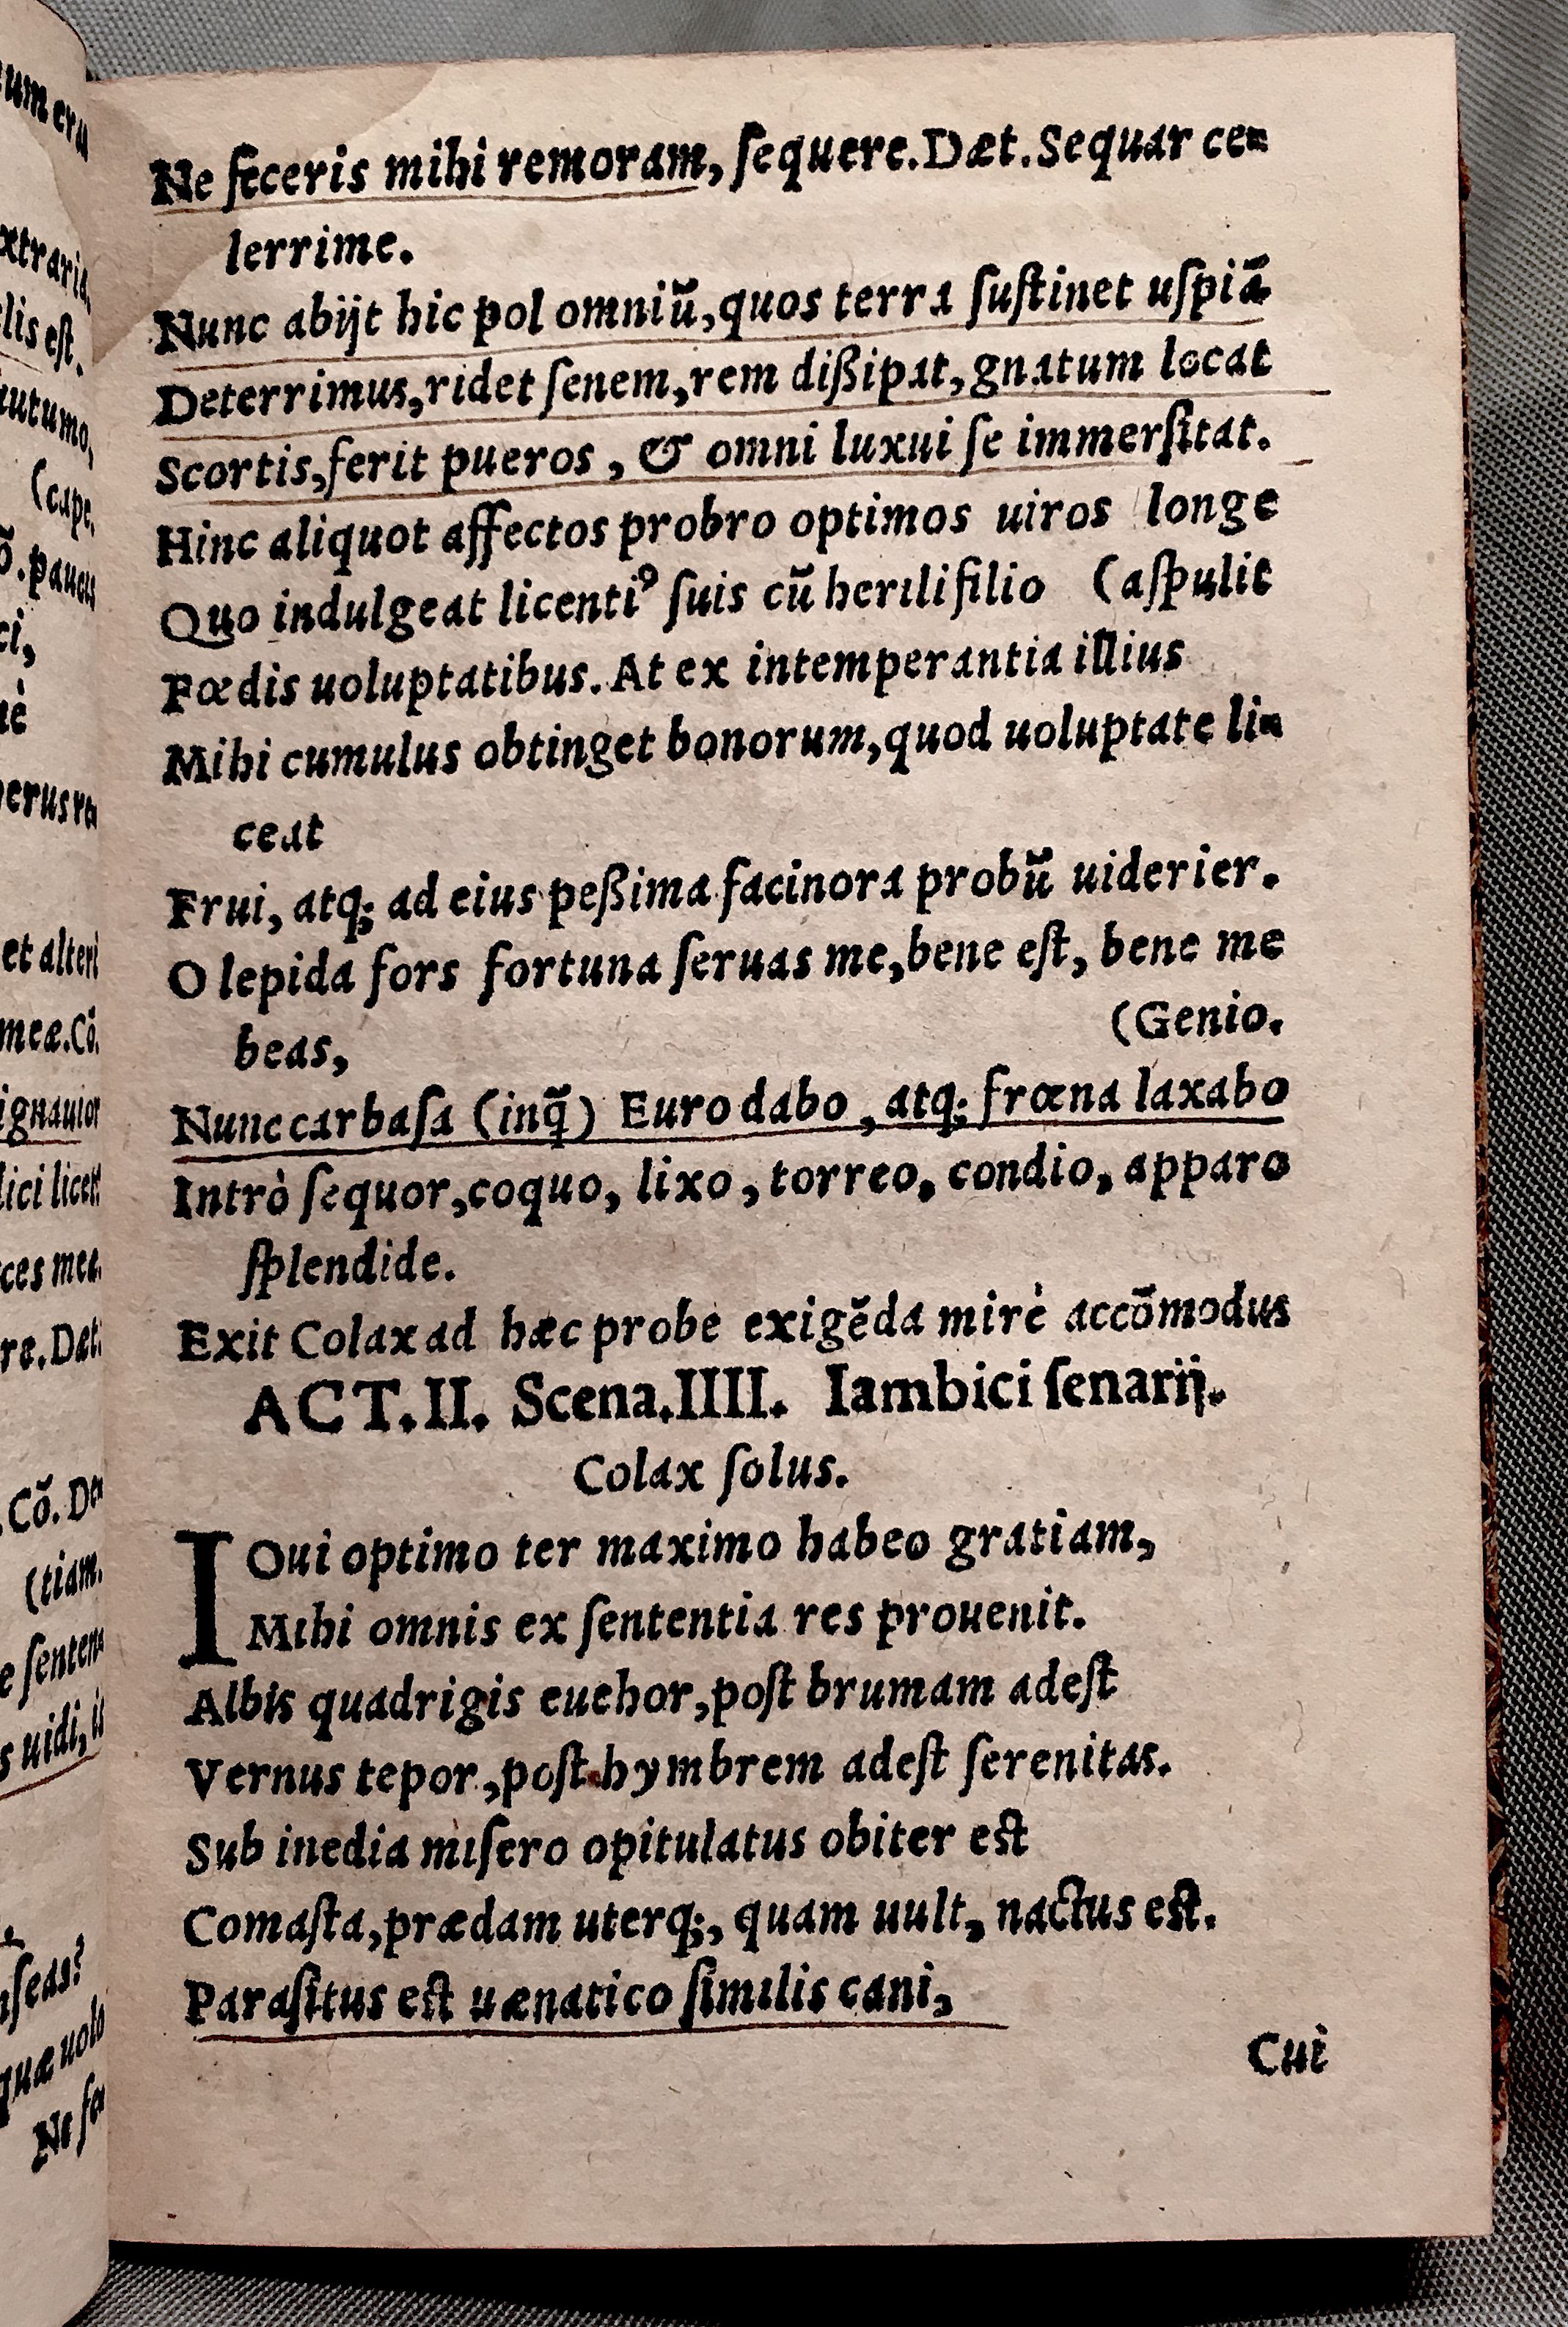 Ne feceris mihi remoram, ſequere. Dæt. Sequar ce⸗
lerrime.
Nunc abijt hic pol omniũ, quos terra ſuſtinet uſpiã
Deterrimus, ridet ſenem, rem dißipat, gnatum locat
Scortis, ferit pueros, & omni luxui ſe immerſitat.
Hinc aliquot affectos probro optimos uiros longe
Quo indulgeat licentiꝰ ſuis cũ herili filio (aſpulit
Fœdis uoluptatibus. At ex intemperantia illius
Mihi cumulus obtinget bonorum, quod uoluptate li⸗
ceat
Frui, atq; ad eius peßima facinora probũ uiderier.
O lepida fors fortuna ſeruas me, bene eſt, bene me
beas, (Genio.
Nunc carbaſa (inq̃) Euro dabo, atq; frœna laxabo
Intrò ſequor, coquo, lixo, torreo, condio, apparo
ſplendide.
Exit Colax ad hæc probe exigẽda mirè accõmodus
ACT. II. Scena. IIII. Iambici ſenarij.
Colax ſolus.
IOui optimo ter maximo habeo gratiam,
Mihi omnis ex ſententia res prouenit.
Albis quadrigis euehor, poſt brumam adeſt
Vernus tepor, poſt hymbrem adeſt ſerenitas.
Sub inedia miſero opitulatus obiter eſt
Comaſta, prædam uterq;, quam uult, nactus eſt.
Paraſitus eſt uænatico ſimilis cani,
Cui